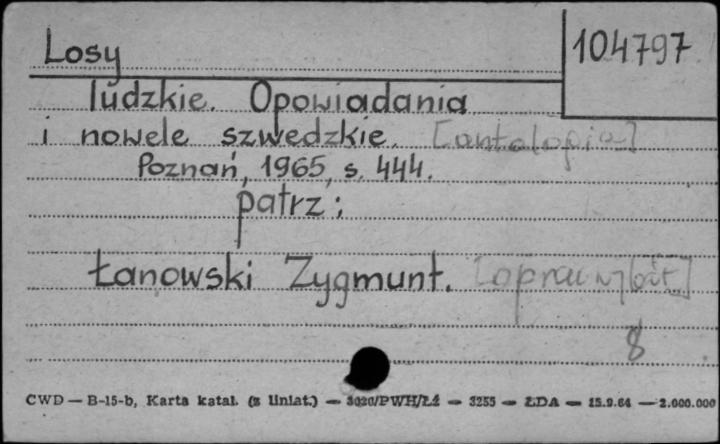 Losy
104797
ludzkie. Opowiadania
i nowele szwedzkie. [antologia]
Poznań, 1965, s. 444.
patrz:
Łanowski Zygmunt.
8
CWD — B-15-b, Karta katal. (z liniat.) — 3020/PWH/Łź — 3255 — ŁDA — 15.9.64 — 2.000.000